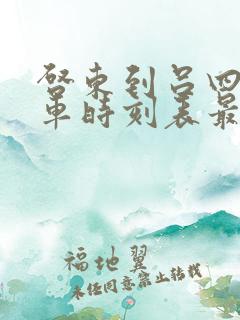 启东到吕四
车时刻表最
福地翼
未经同意禁止转载